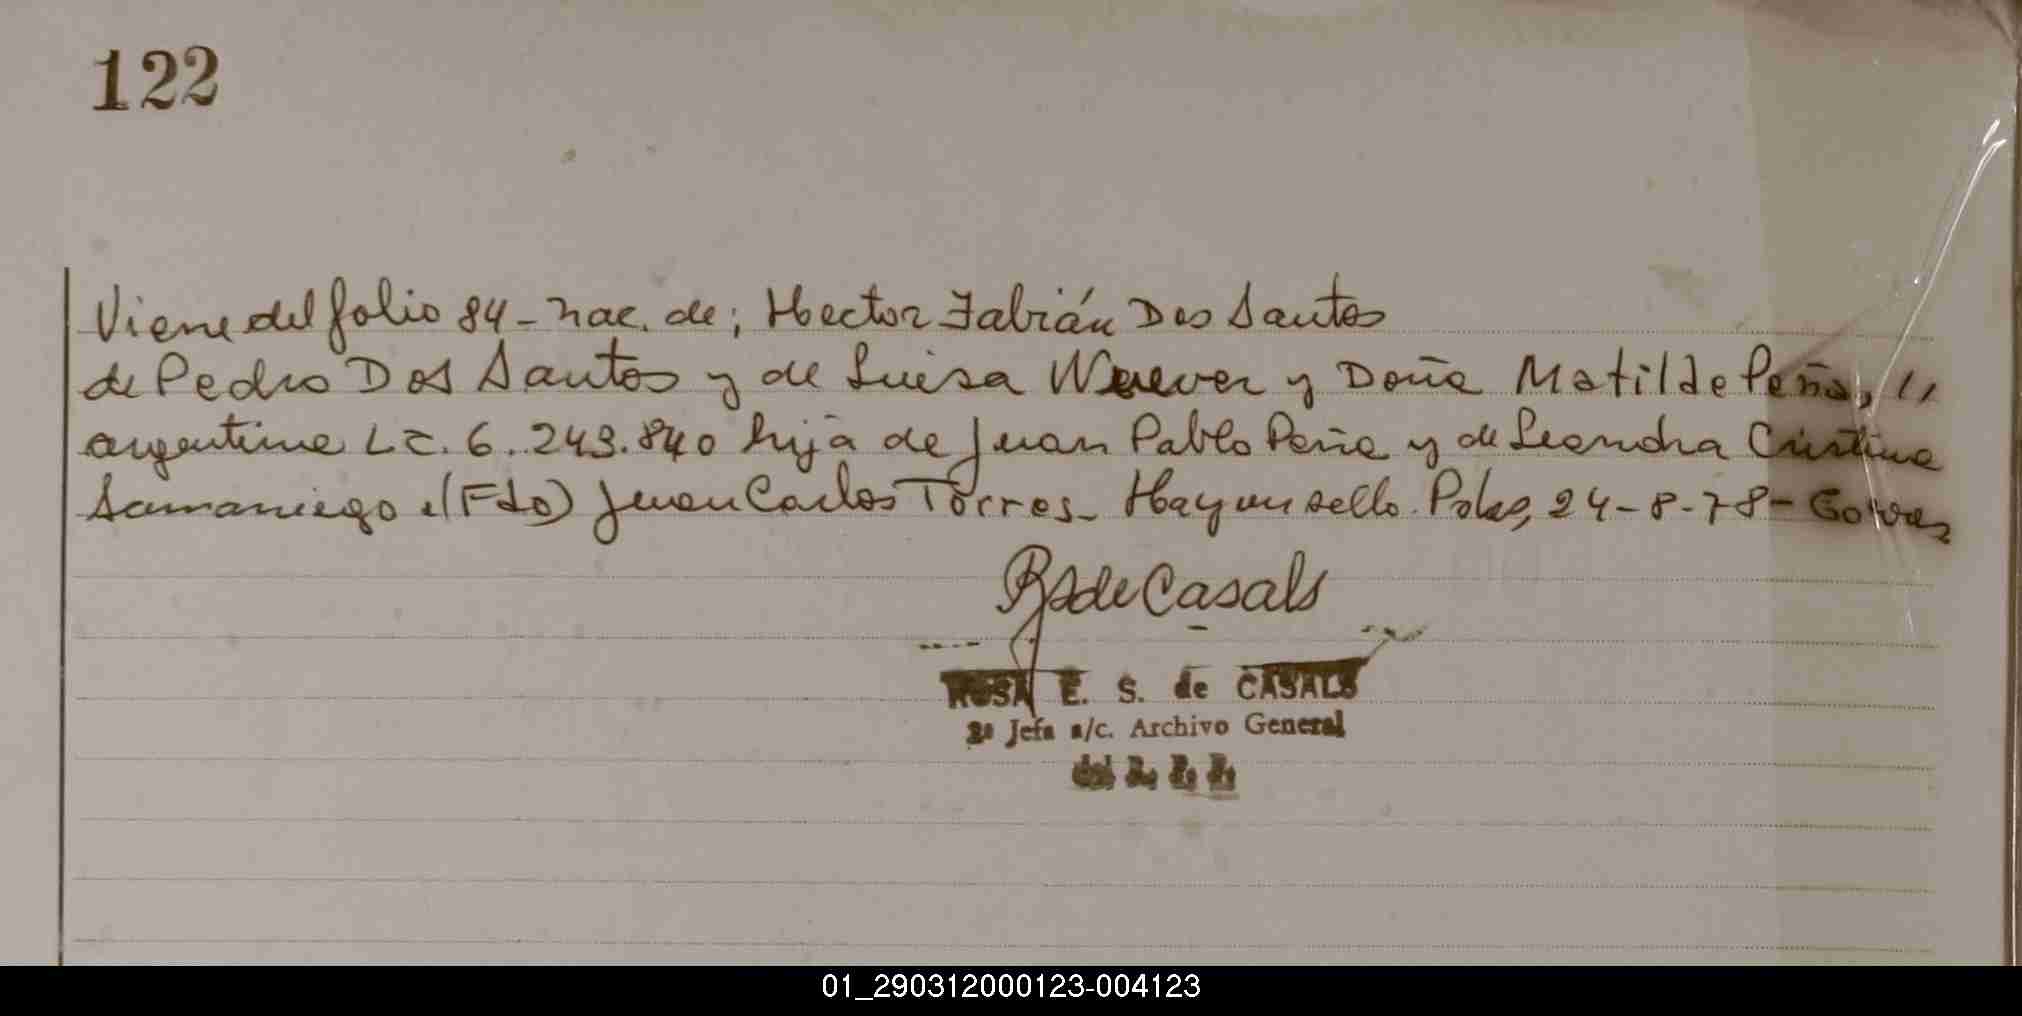 122
Viene del folio 84 - nac. de; Hector Fabián Dos Santos
de Pedro Dos Santos y de Luisa y Doña Matilde Peña, //
argentina L.C. 6.243.840 hija de Juan Pablo Peña y de Leandra Cristina
Samaniego (Fdo) Juan Carlos Torres - Hay un sello. Pdas, 24-8-78 -
RSdeCasals
ROSA E. S. de CASALS
2ª Jefa a/c. Archivo General
del R. P. P.
01_290312000123-004123